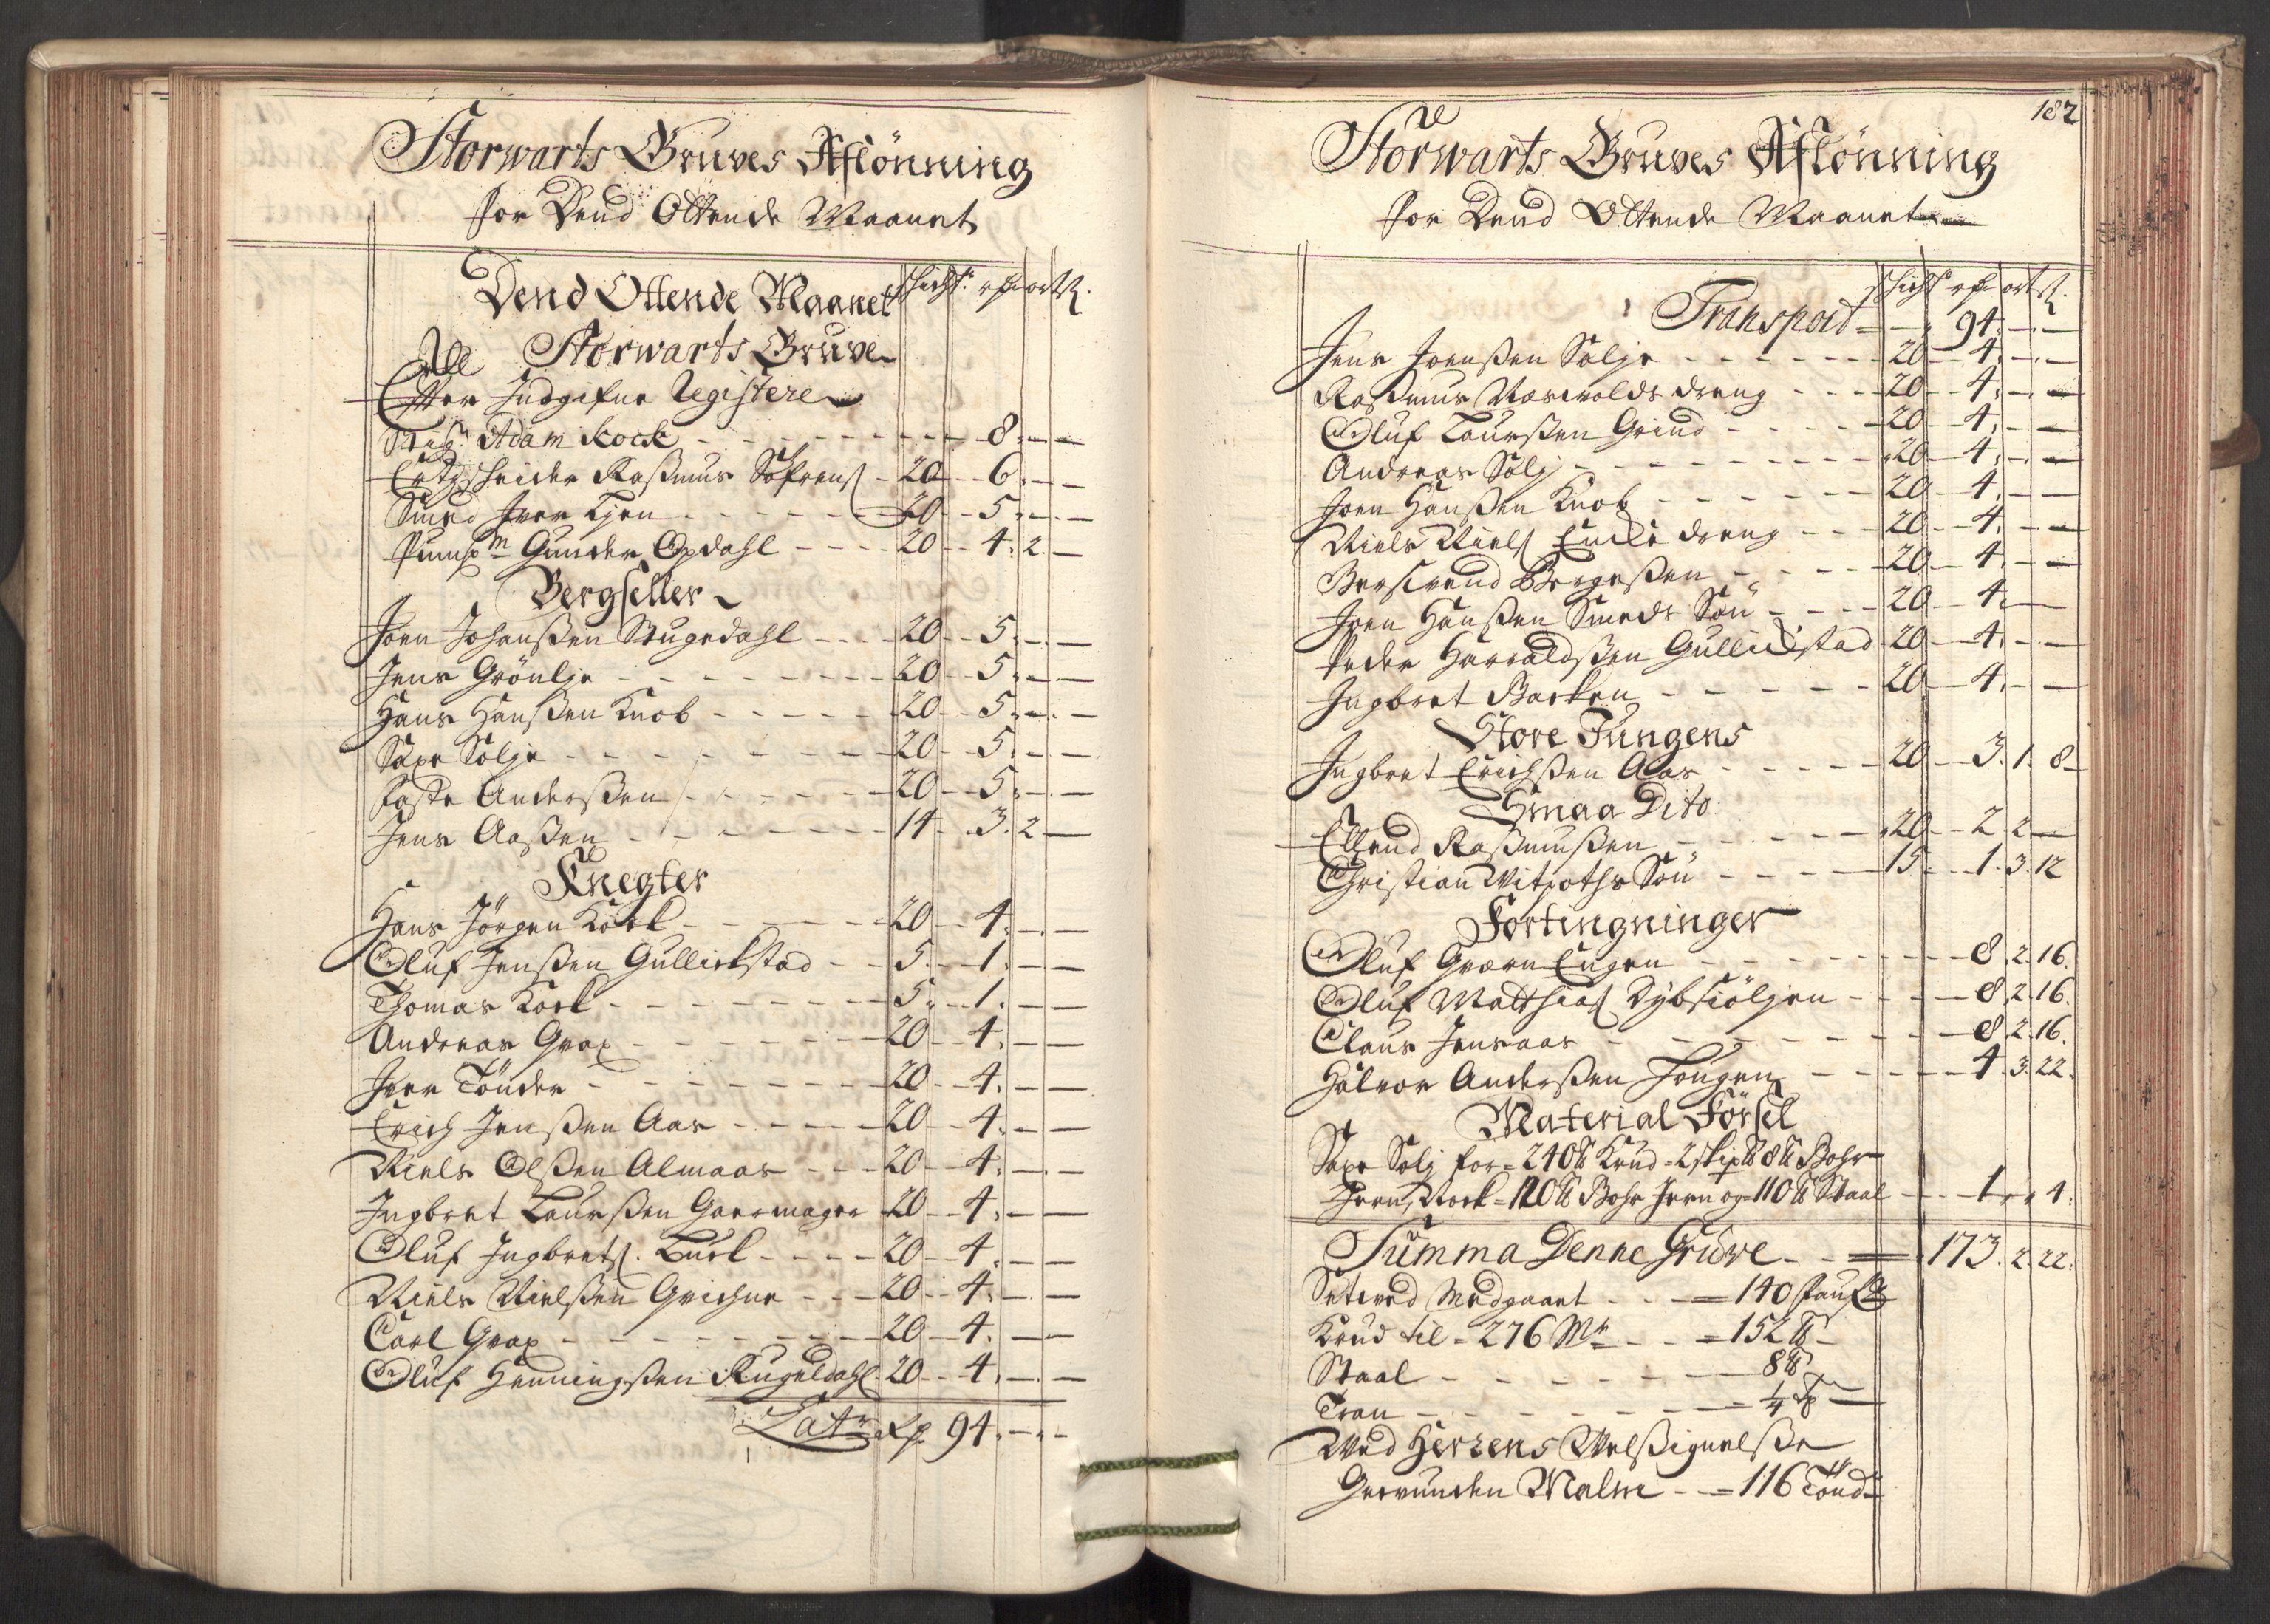 Storwarts Gruves Aflönning
for Dend Ottende Maanet
Dend Ottende Maanet schicht: rp ort ß.
Storwarts Gruve
Efter Indgifne Registere
Stig: Adam Kock - - - 8 " - -
Ertzscheider Rasmus Söfrens - 20 - 6 " - -
Smed Iver Kjen - - - 20 - 5 " - -
Pump m Gunder Opdahl - - - 20 - 4 " 2 -
Bergseller
Joen Johanßen Stugedahl - - - 20 - 5 " - -
Jens Grönlje - - - 20 - 5 " - -
Hans Hanßen Knob - - - 20 - 5 " - -
Saxe Solje - - - 20 - 5 " - -
Faste Anderßen - - - 20 - 5 " - -
Jens Aaßen - - - 14 - 3 . 2 -
Knegter
Hans Jörgen Kock - - - 20 - 4 " - -
Oluf Jenßen Gullickstad - - 5 - 1 " - -
Thomas Kock - - - 5 " - 1 . - -
Andreas Grax - - - 20 - 4 . - -
Iver Tönder - - - 20 - 4 . - -
Erich Jenßen Aas - - - 20 - 4 . - -
Niels Olßen Almaas - - - 20 - 4 . - -
Ingbret Laurßen Gaermager 20 - 4 . - -
Oluf Ingbrets. Lurk - - - 20 - 4 . - -
Niels Nielßen Grichne - - 20 - 4 . - -
Carl Grax - - - 20 - 4 . - -
Oluf Henningßen Rugeldahl - 20 - 4 . - -
Lat: Rp 94 . - -
187
Storwarts Gruves Aflönning
for Dend Ottende Maanet
schicht rp ort ß.
Transport - - " 94 . - -
Jens Joenßen Solje - - - 20 - 4 . - -
Rasmus Næsvolds dreng - - - 20 - 4 . - -
Oluf Laurßen Grind - - - 20 - 4 . - -
Andreas Solj - - - 20 - 4 . - -
Joen Hanßen Knob - - - 20 - 4 . - -
Niels Niels Encke dreng - - 20 - 4 . - -
Bersvend Börgeßen - - - 20 - 4 . - -
Joen Hanßen Smeds Sön - - - 20 - 4 . -
Peder Harraldßen Gullickstad 20 - 4 . - -
Ingbret Backen - - - 20 - 4 . - -
Store Jungens
Ingbret Erichßen Aas - - - 20 - 3 . 1 . 8 -
Smaa Dito
Ellend Rasmußen - - - 20 - 2 . 2 -
Christian Witpoths Sön - - - 15 - 1 . 3 . 12
Fortingninger
Oluf Græn Engen - - - 8 . 2 . 16.
Oluf Matthias Dybsiöljen - - - 8 . 2 . 16.
Claus Jensaas - - - 8 . 2 . 16.
Halvor Anderßen Hougen - - - 4 . 3 . 22.
Material Förßel
Saxe Solj for = 240 ℔ Krud - 2 skip℔ 8 ℔ Bohr
Jern, Nock = 120 ℔ Bohr Jern og = 110 ℔ Staal - - 1 " " 4.
Summa Denne Gruve - - = 173 . 2 . 22.
Setved Medgaaet - - = 140 faufn
Krud til = 276 Mtr - - = 152 ℔ -
Staal - - - 8 ℔
Tran - - - 1/4 Tr -
Ved Herrens Velßignelße
Gevunden Malm - - = 116 Tönd: